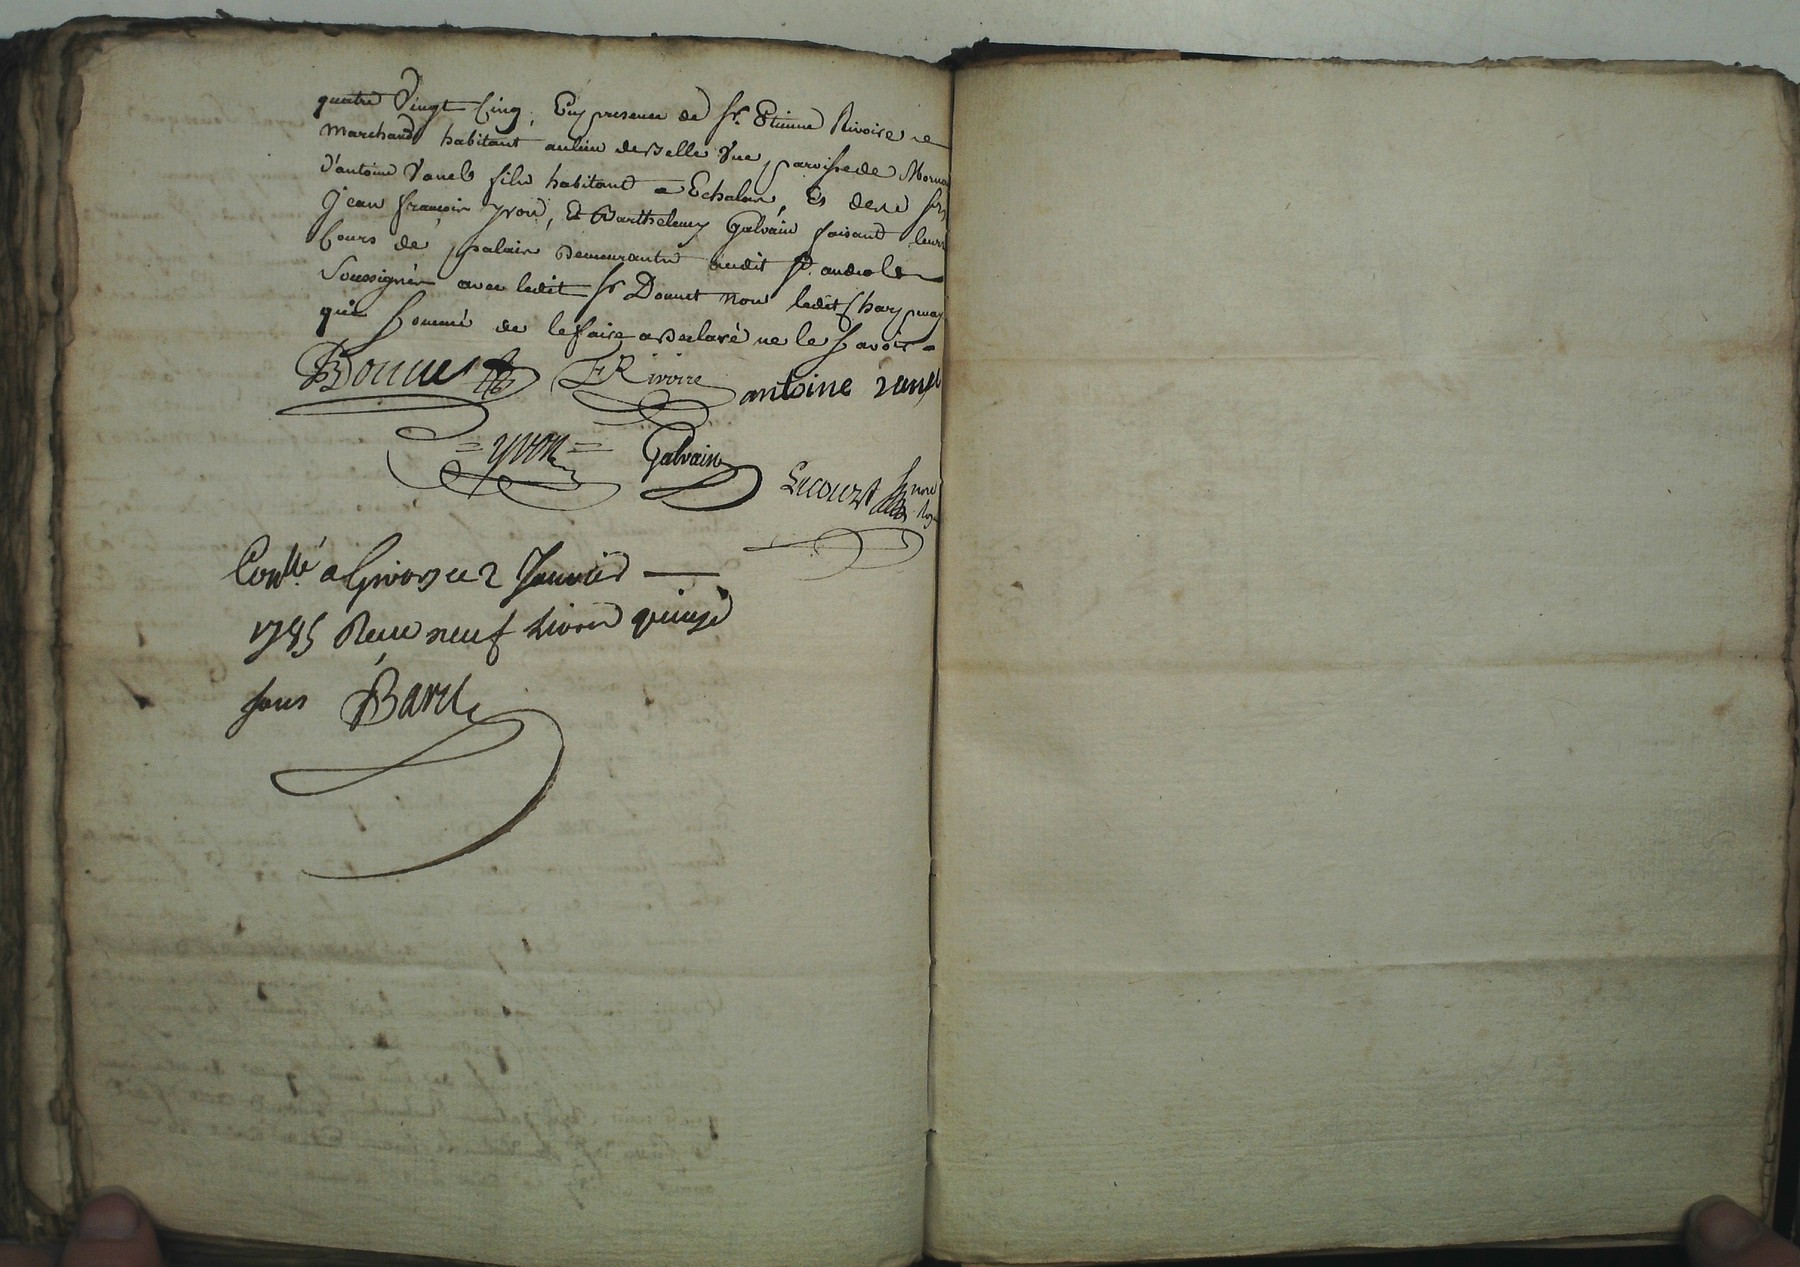 quatre Vingt Cinq, En presence de Sr. Etienne Rivoire
marchand habitant au lieu de Belle Vue paroisse de Morna
d'antoine Vanel fils habitant a Echalas, Et de
Jean françois yvon, Et Barthelemy Galvain faisant leurs
Cours de palais demeurants audit St. andeol
Soussignés avec ledit Sr Donnet non ledit Charpenay
qui Sommé de le faire a declaré ne le Savoir
Donnet ERivoire antoine vanel
= yvon = Galvain
Lecourt
Conllé a Givors ce 2 Janvier
1785 Reçu neuf Livres quinze
sous Baril